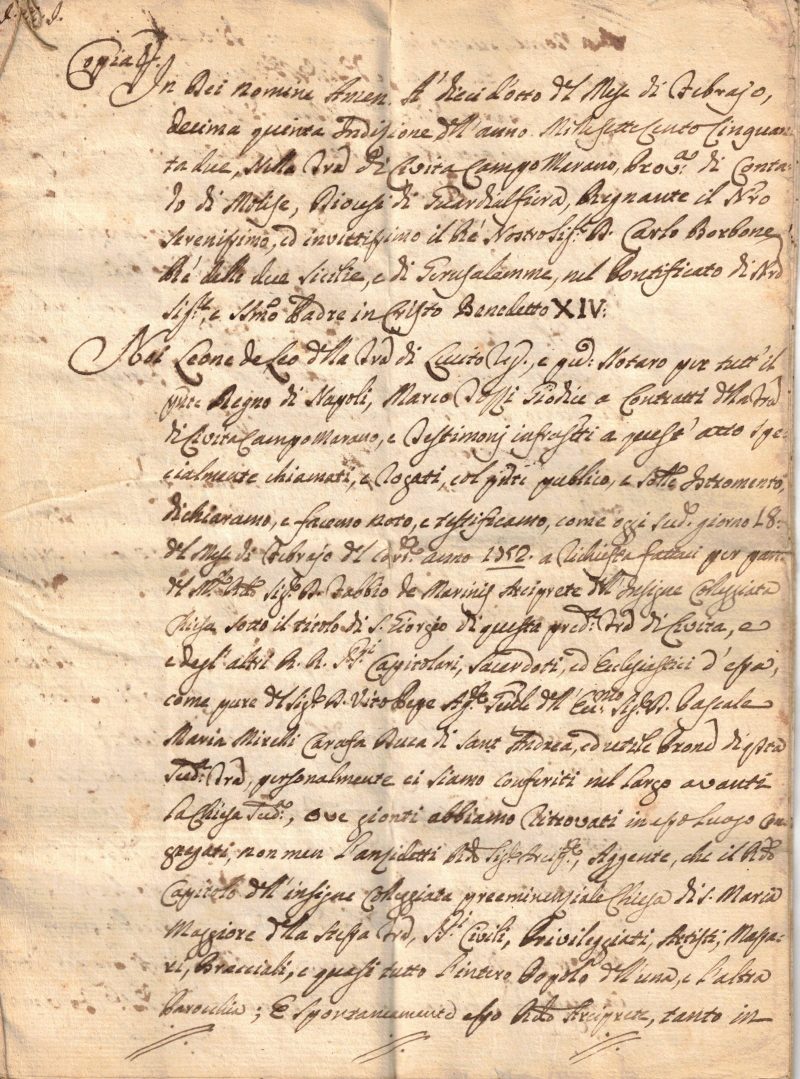 Copia
In Dei nomine Amen. A' dieci d'otto del Mese di Febrajo,
decima quinta Indizione dell'anno Millesette Cento Cinquan
ta due, nella Trã di Civita Campo Marano, Pro: di Conta
do di Molise, Diocesi di Guardialfiera, Regnante il Nro
Serenissimo, ed invittissimo il Rè Nostro Sig.r D. Carlo Borbone
Rè delle due Sicilie, e di Gerusalemme, nel Pontificato di Nrõ
Sig.re, e Padre in Cristo Benedetto XIV:
Noi Leone de Leo della Trã di, e Notaro per tutt'il
pnte Regno di Napoli, Marco Giudice a Contratti della Trã
di Civita Campo Marano, e Testimonj infratti a quest' atto spe
cialmente chiamati, e rogati, col pnte publico, e Istromento,
dichiaramo, e facemo noto, e testificamo, come oggi sud.o giorno 18:
del Mese di Febrajo del anno 1752. a richiesta fattaci per parte
del Sig.r D. Fabbio de Marinis Arciprete dell'Insigne Colleggiata
Chiesa sotto il titolo di S. Giorgio di questa pred.a Trã di Civita, e
e degl'altri R. R. Capitolari, Sacerdoti, ed Ecclesiastici d'essa,
come pure del Sig.r D. Vito Pepe Ag.te dell' Sig.r D. Pascale
Maria Mirelli Carafa Duca di Sant' Andrea, ed utile Pronẽ di qsta
sud.a Trã, personalmente ci siamo conferiti nel largo avanti
la Chiesa sud.a, ove gionti abbiamo ritrovati in esso luogo con
gregati, non men l'anzidetti, Aggente, che il
Capitolo dell'insigne Colleggiata preeminenziale Chiesa di S. Maria
Maggiore della stessa Trã, Civili, Privileggiati, Artisti, Massa-
ri, Bracciali, e quasi tutto l'intero Popolo dell'una, e l'altra
Parocchia; E spontaneamente esso Arciprete, tanto in